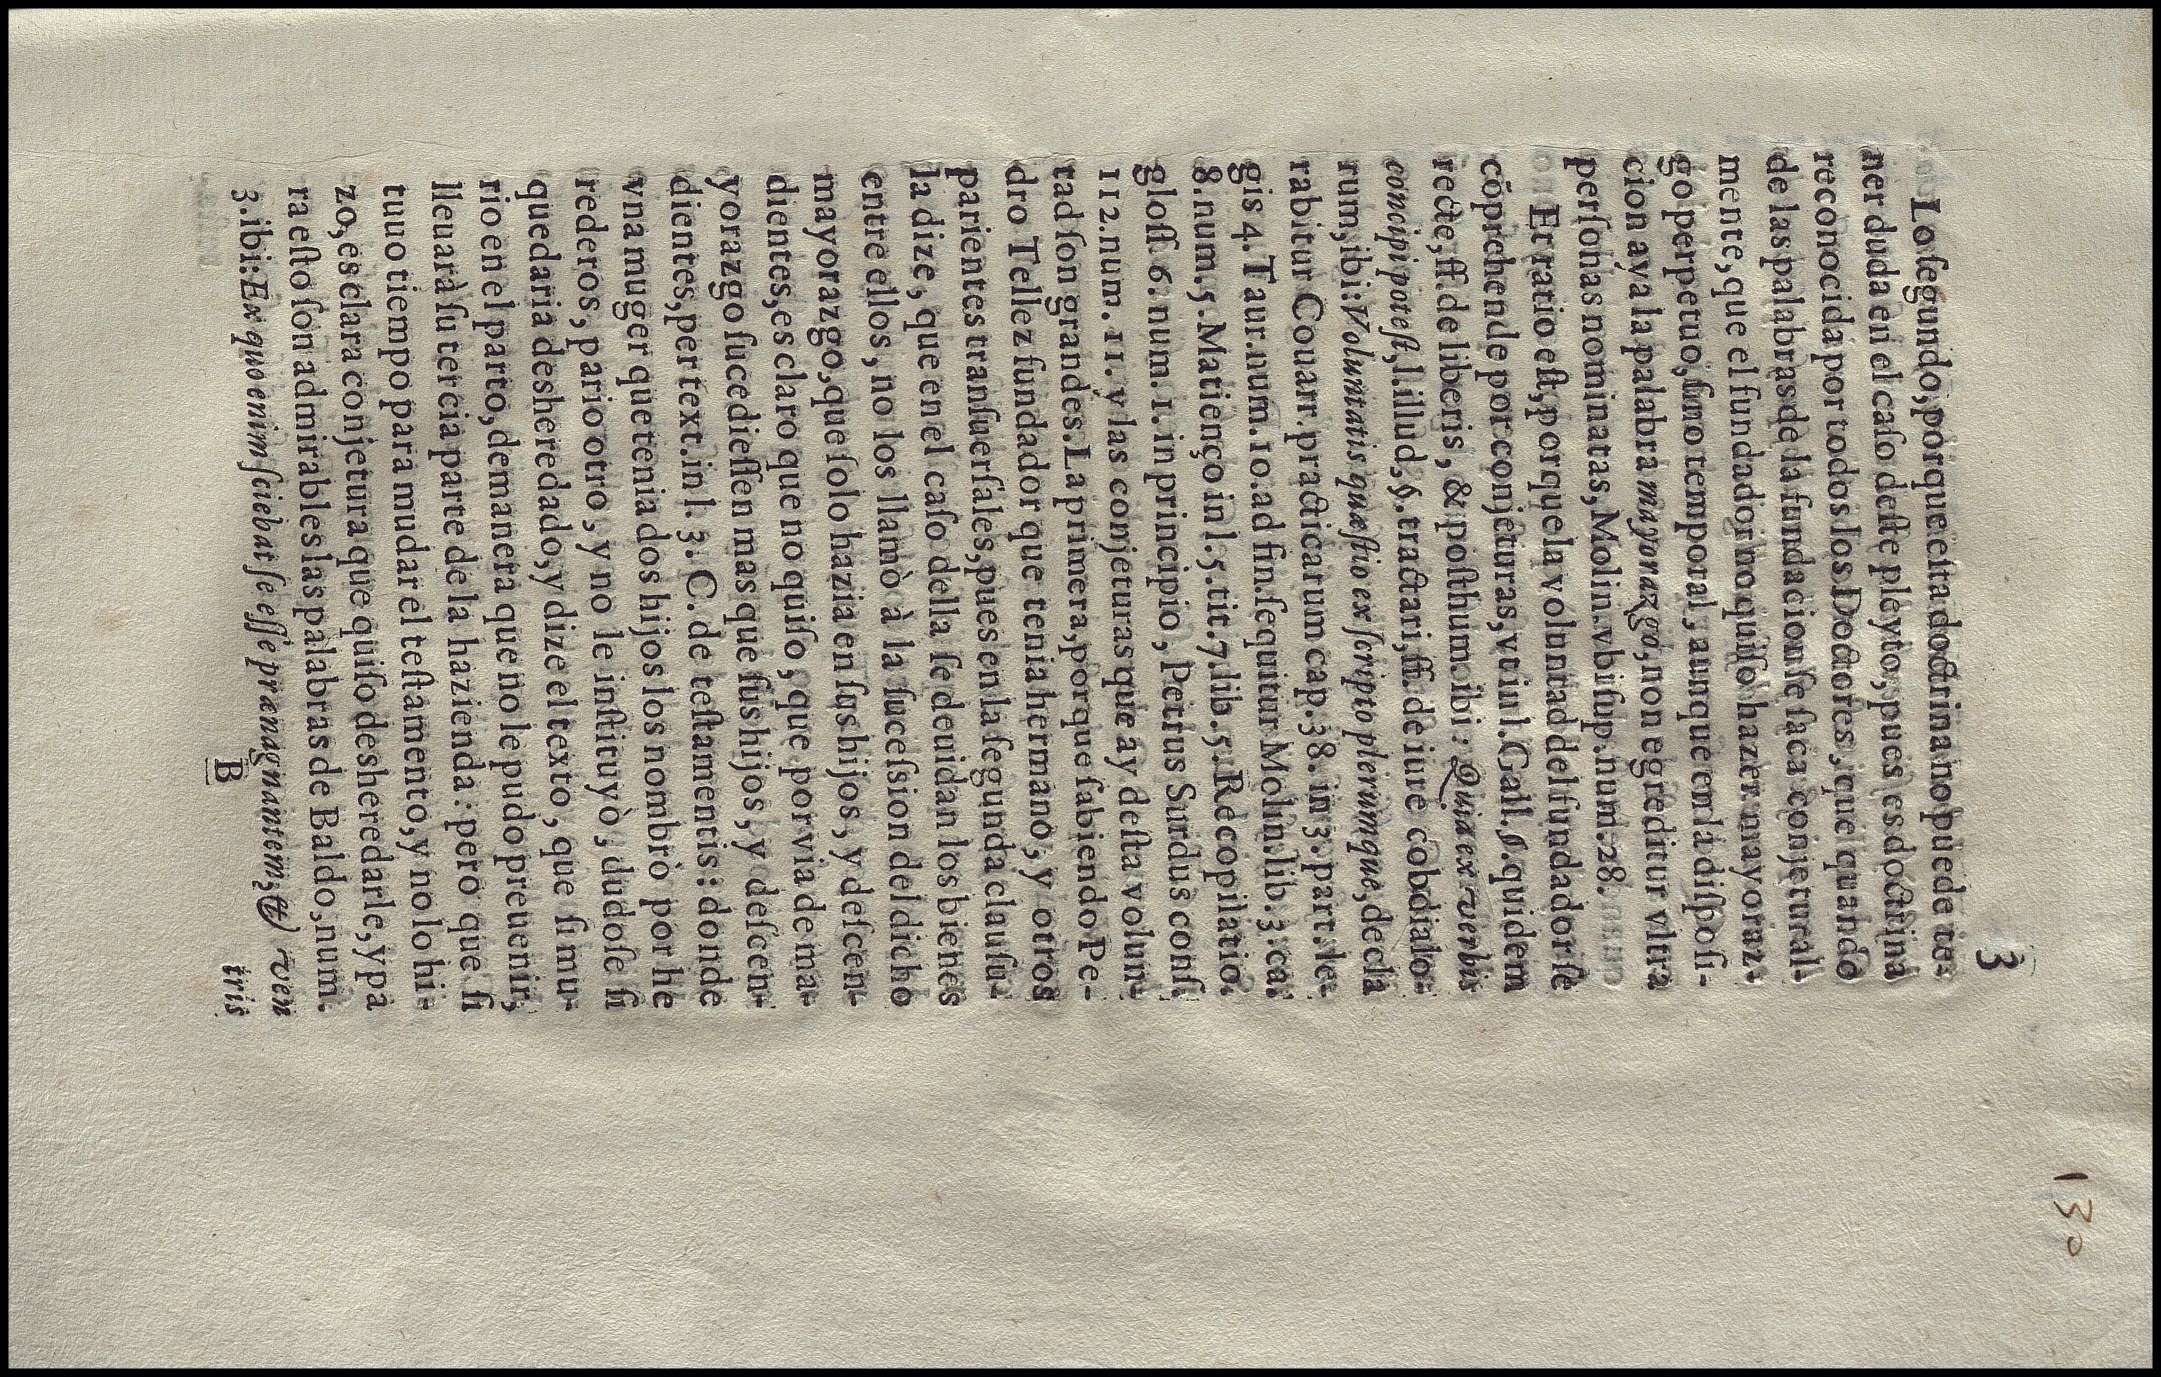 3
130
Lo segundo, porque esta doctrina no puede te-
ner duda en el caso deste pleyto, pues es doctrina
reconocida por todos los Doctores, que quando
de las palabras de la fundacion se saca conjetural-
mente, que el fundador no quiso hazer mayoraz-
go perpetuo, sino temporal, aunque en la disposi-
cion aya la palabra mayorazgo, non egreditur vltra
personas nominatas, Molin. vbi sup. num. 28.
Et ratio est, porque la voluntad del fundador se
cōprehende por conjeturas, vt in l. Gall. §. quidem
recte, ff. de liberis, & posthum. ibi: Quia ex verbis
concipi potest, l. illud, §. tractari, ff. de iure cobdialo-
rum, ibi: Voluntatis quæstio ex scripto plerumque, decla
rabitur Couarr. practicarum cap. 38. in 3. part. le-
gis 4. Taur. num. 10. ad fin. sequitur Molin. lib. 3. ca.
8. num. 5. Matienço in l. 5. tit. 7. lib. 5. Recopilatio.
gloss 6. num. 1. in principio, Petrus Surdus cons.
112. num. 11. y las conjeturas que ay desta volun-
tad son grandes. La primera, porque sabiendo Pe-
dro Tellez fundador que tenia hermano, y otros
parientes transuersales, pues en la segunda clausu-
la dize, que en el caso della se deuidan los bienes
entre ellos, no los llamò à la sucession del dicho
mayorazgo, que solo hazia en sus hijos, y descen-
dientes, es claro que no quiso, que por via de ma-
yorazgo sucediessen mas que sus hijos, y descen-
dientes, per text. in l. 3. C. de testamentis: donde
vna muger que tenia dos hijos los nombrò por he
rederos, pario otro, y no le instituyò, dudose si
quedaria desheredado, y dize el texto, que si mu-
rio en el parto, de manera que no le pudo preuenir,
lleuarà su tercia parte de la hazienda: pero que si
tuuo tiempo para mudar el testamento, y no lo hi-
zo, es clara conjetura que quiso desheredarle, y pa
ra esto son admirables las palabras de Baldo, num.
3. ibi: Ex quo enim sciebat se esse præmagnantem, & ven
B
tris